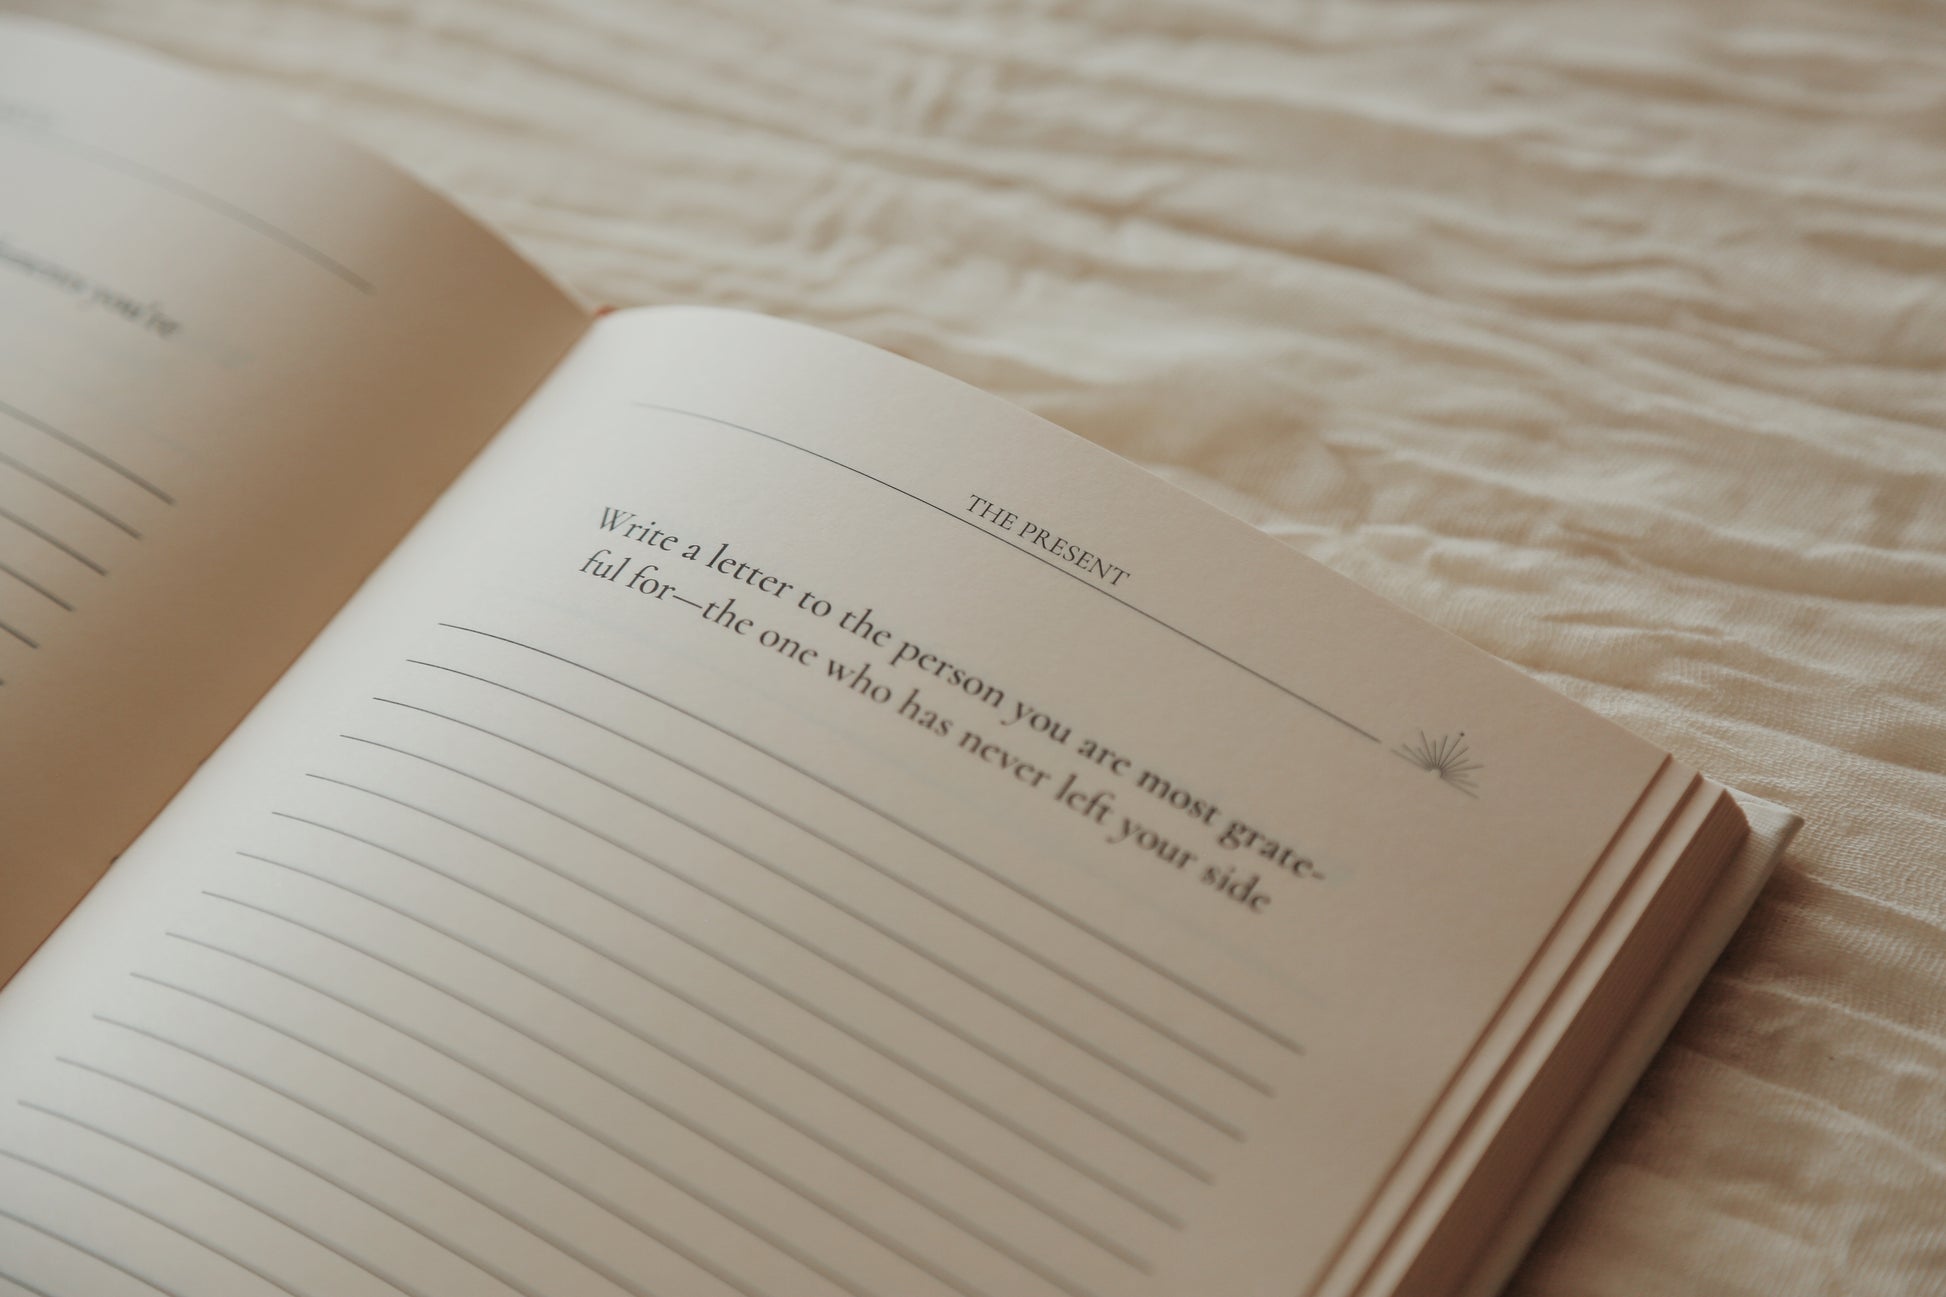 you're
THE PRESENT
Write a letter to the person you are most grate-
ful for—the one who has never left your side